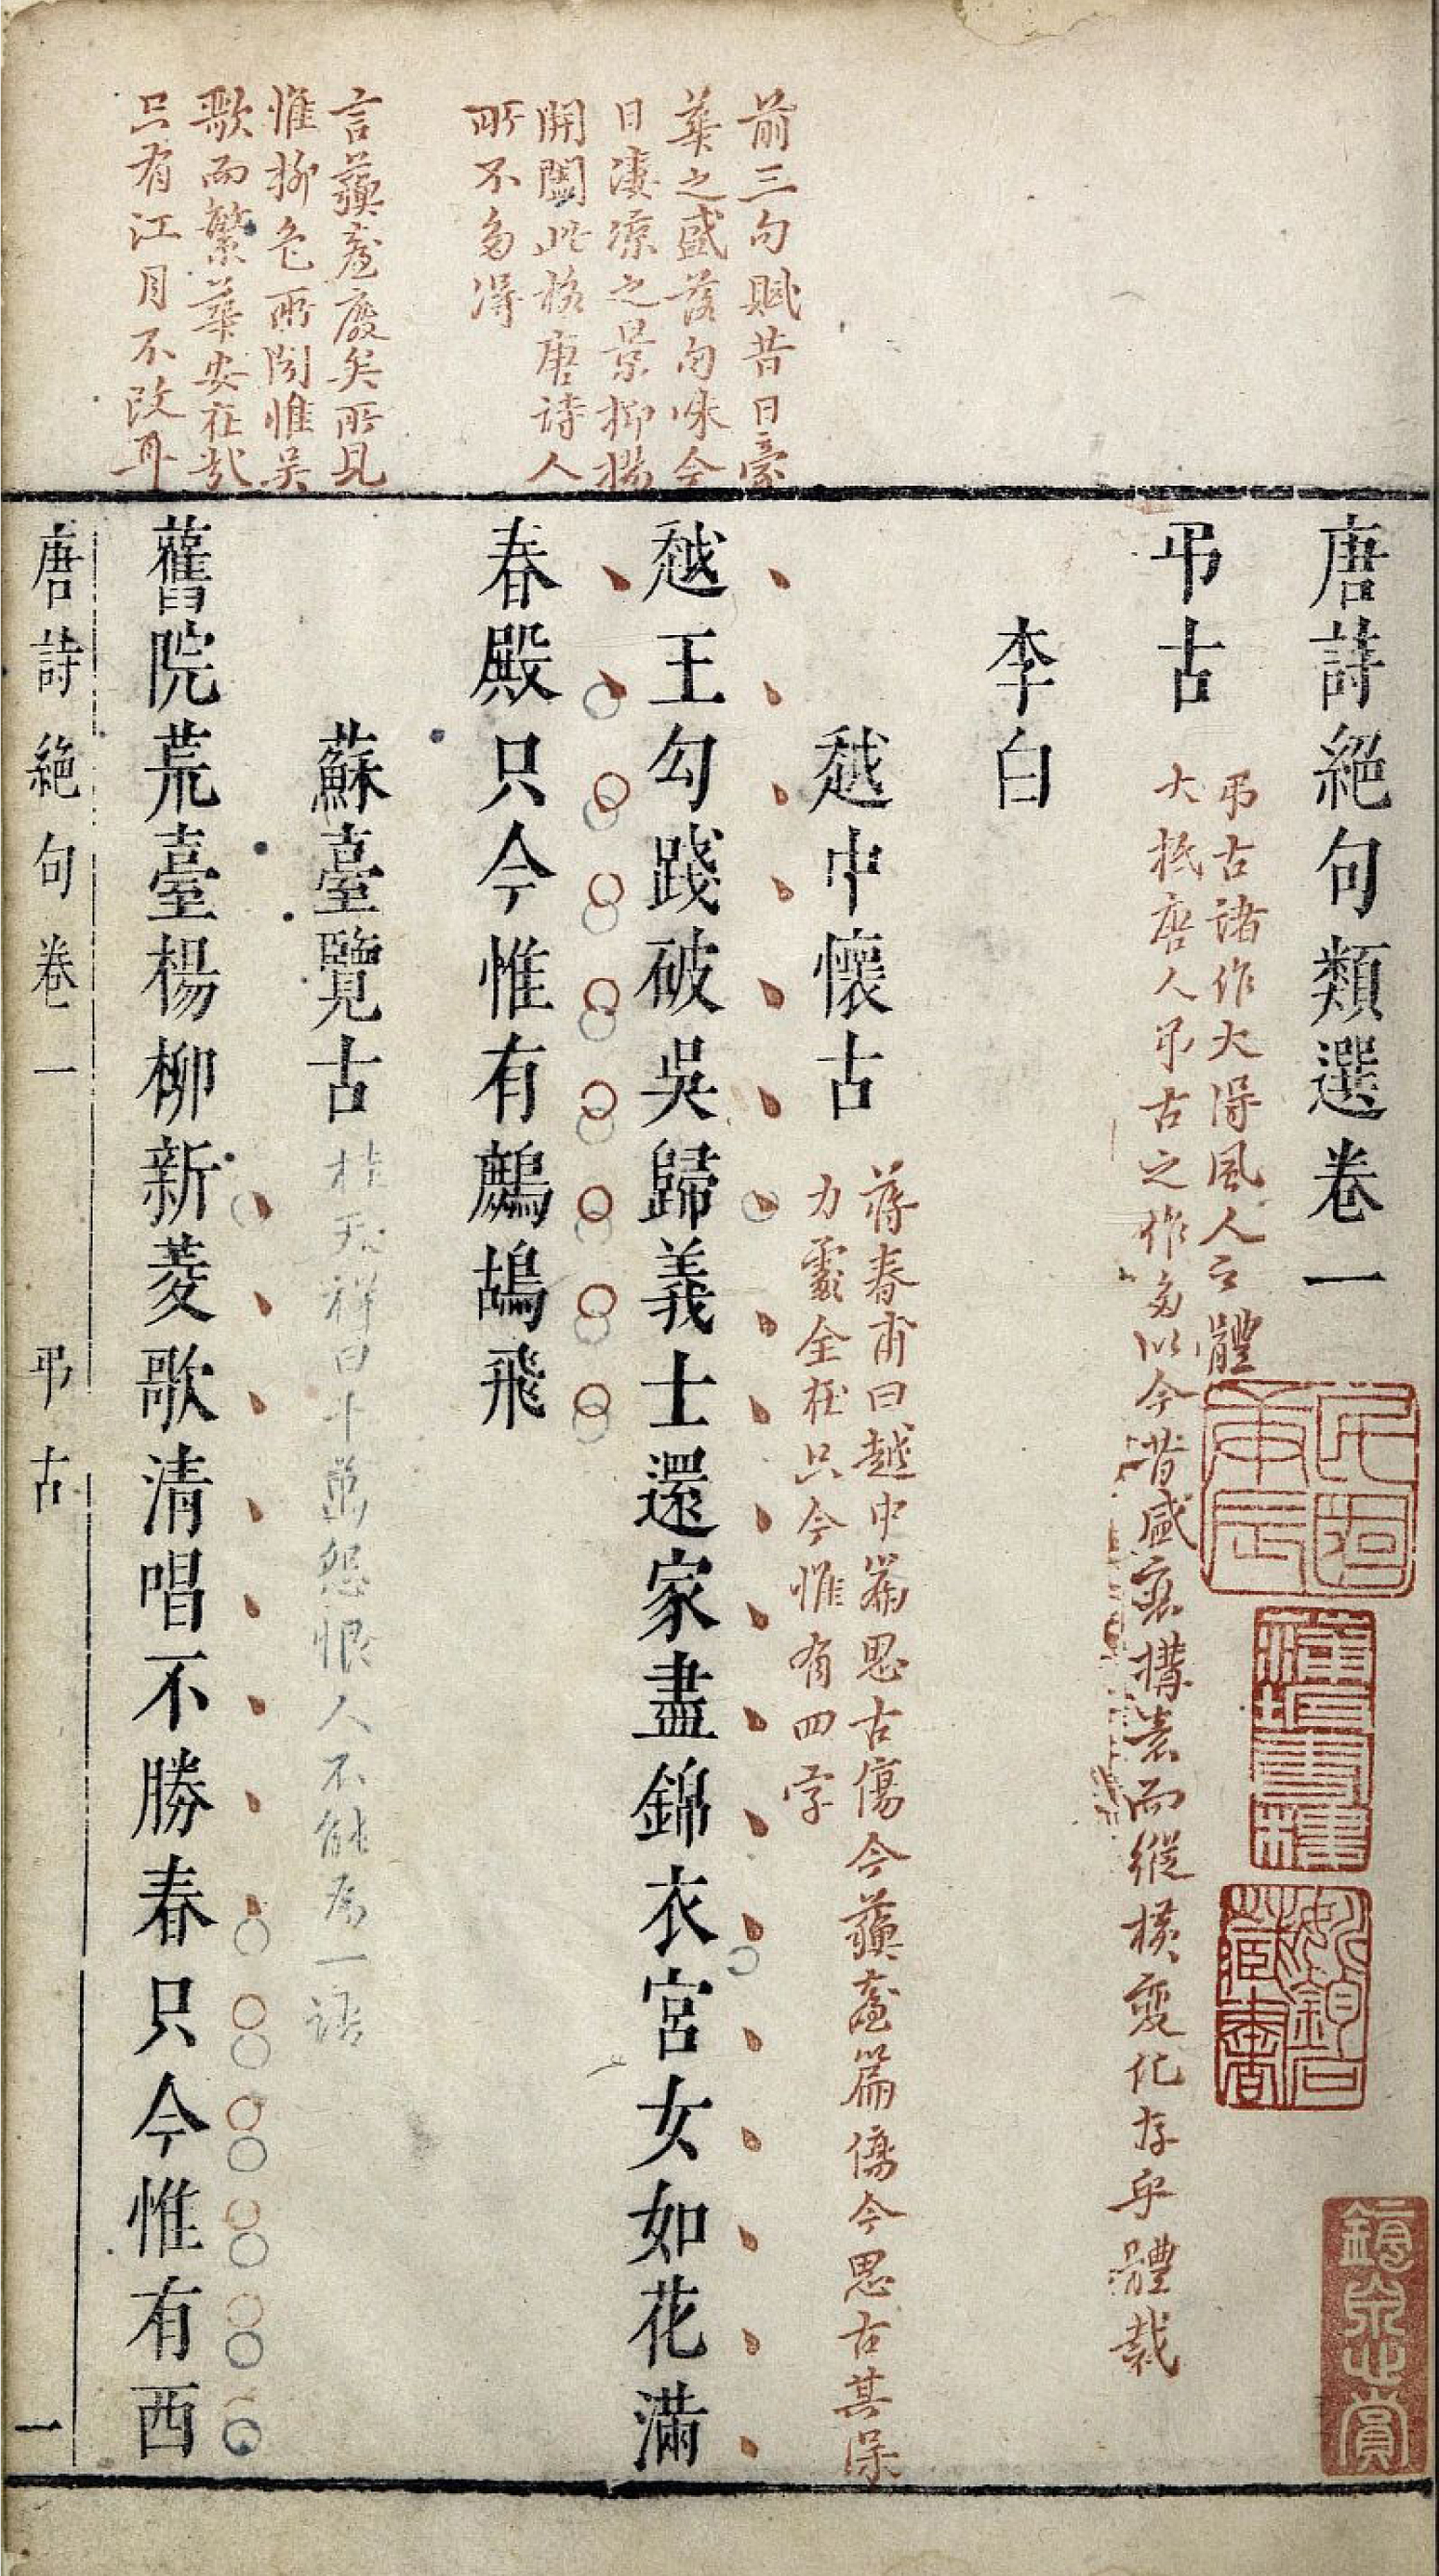 唐詩絕句類選卷一
弔古
弔古諸作大得風人之體
大抵唐人弔古之作多以今昔盛衰構意而縱橫變化存乎體裁
李白
越中懷古
蔣春甫曰越中篇思古傷今蘇臺篇傷今思古其深
力處全在只今惟有四字
前三句賦昔日豪
華之盛落句咏今
日淒涼之景抑揚
開闔此格唐詩人
所不多得
越王勾踐破吳歸義士還家盡錦衣宮女如花滿
春殿只今惟有鷓鴣飛
蘇臺覽古
桂天祥曰十萬怨恨人不能為一語
言蘇臺廢矣所見
惟柳色所聞惟吳
歌而繁華安在哉
只有江月不改耳
舊院荒臺楊柳新菱歌清唱不勝春只今惟有西
唐詩絕句卷一
弔古
一